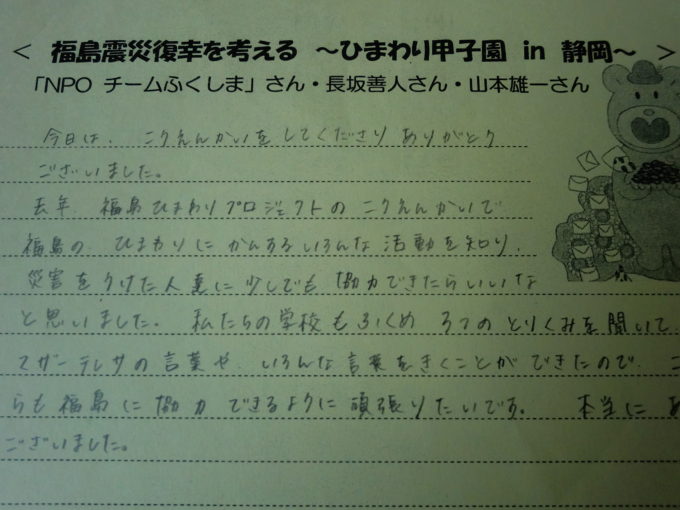 ＜ 福島震災復幸を考える ～ひまわり甲子園 in 静岡～ ＞
「NPO チームふくしま」さん・長坂善人さん・山本雄一さん
今日は、こうえんかいをしてくださりありがとう
ございました。
去年、福島ひまわりプロジェクトのこうえんかいで
福島の ひまわりにかんするいろんな活動を知り、
災害をうけた人達に少しでも協力できたらいいな
と思いました。私たちの学校もふくめ 3つのとりくみを聞いて、
マザーテレサの言葉や、いろんな言葉をきくことができたので、こ
らも福島に協力できるように頑張りたいです。 本当にあ
ございました。